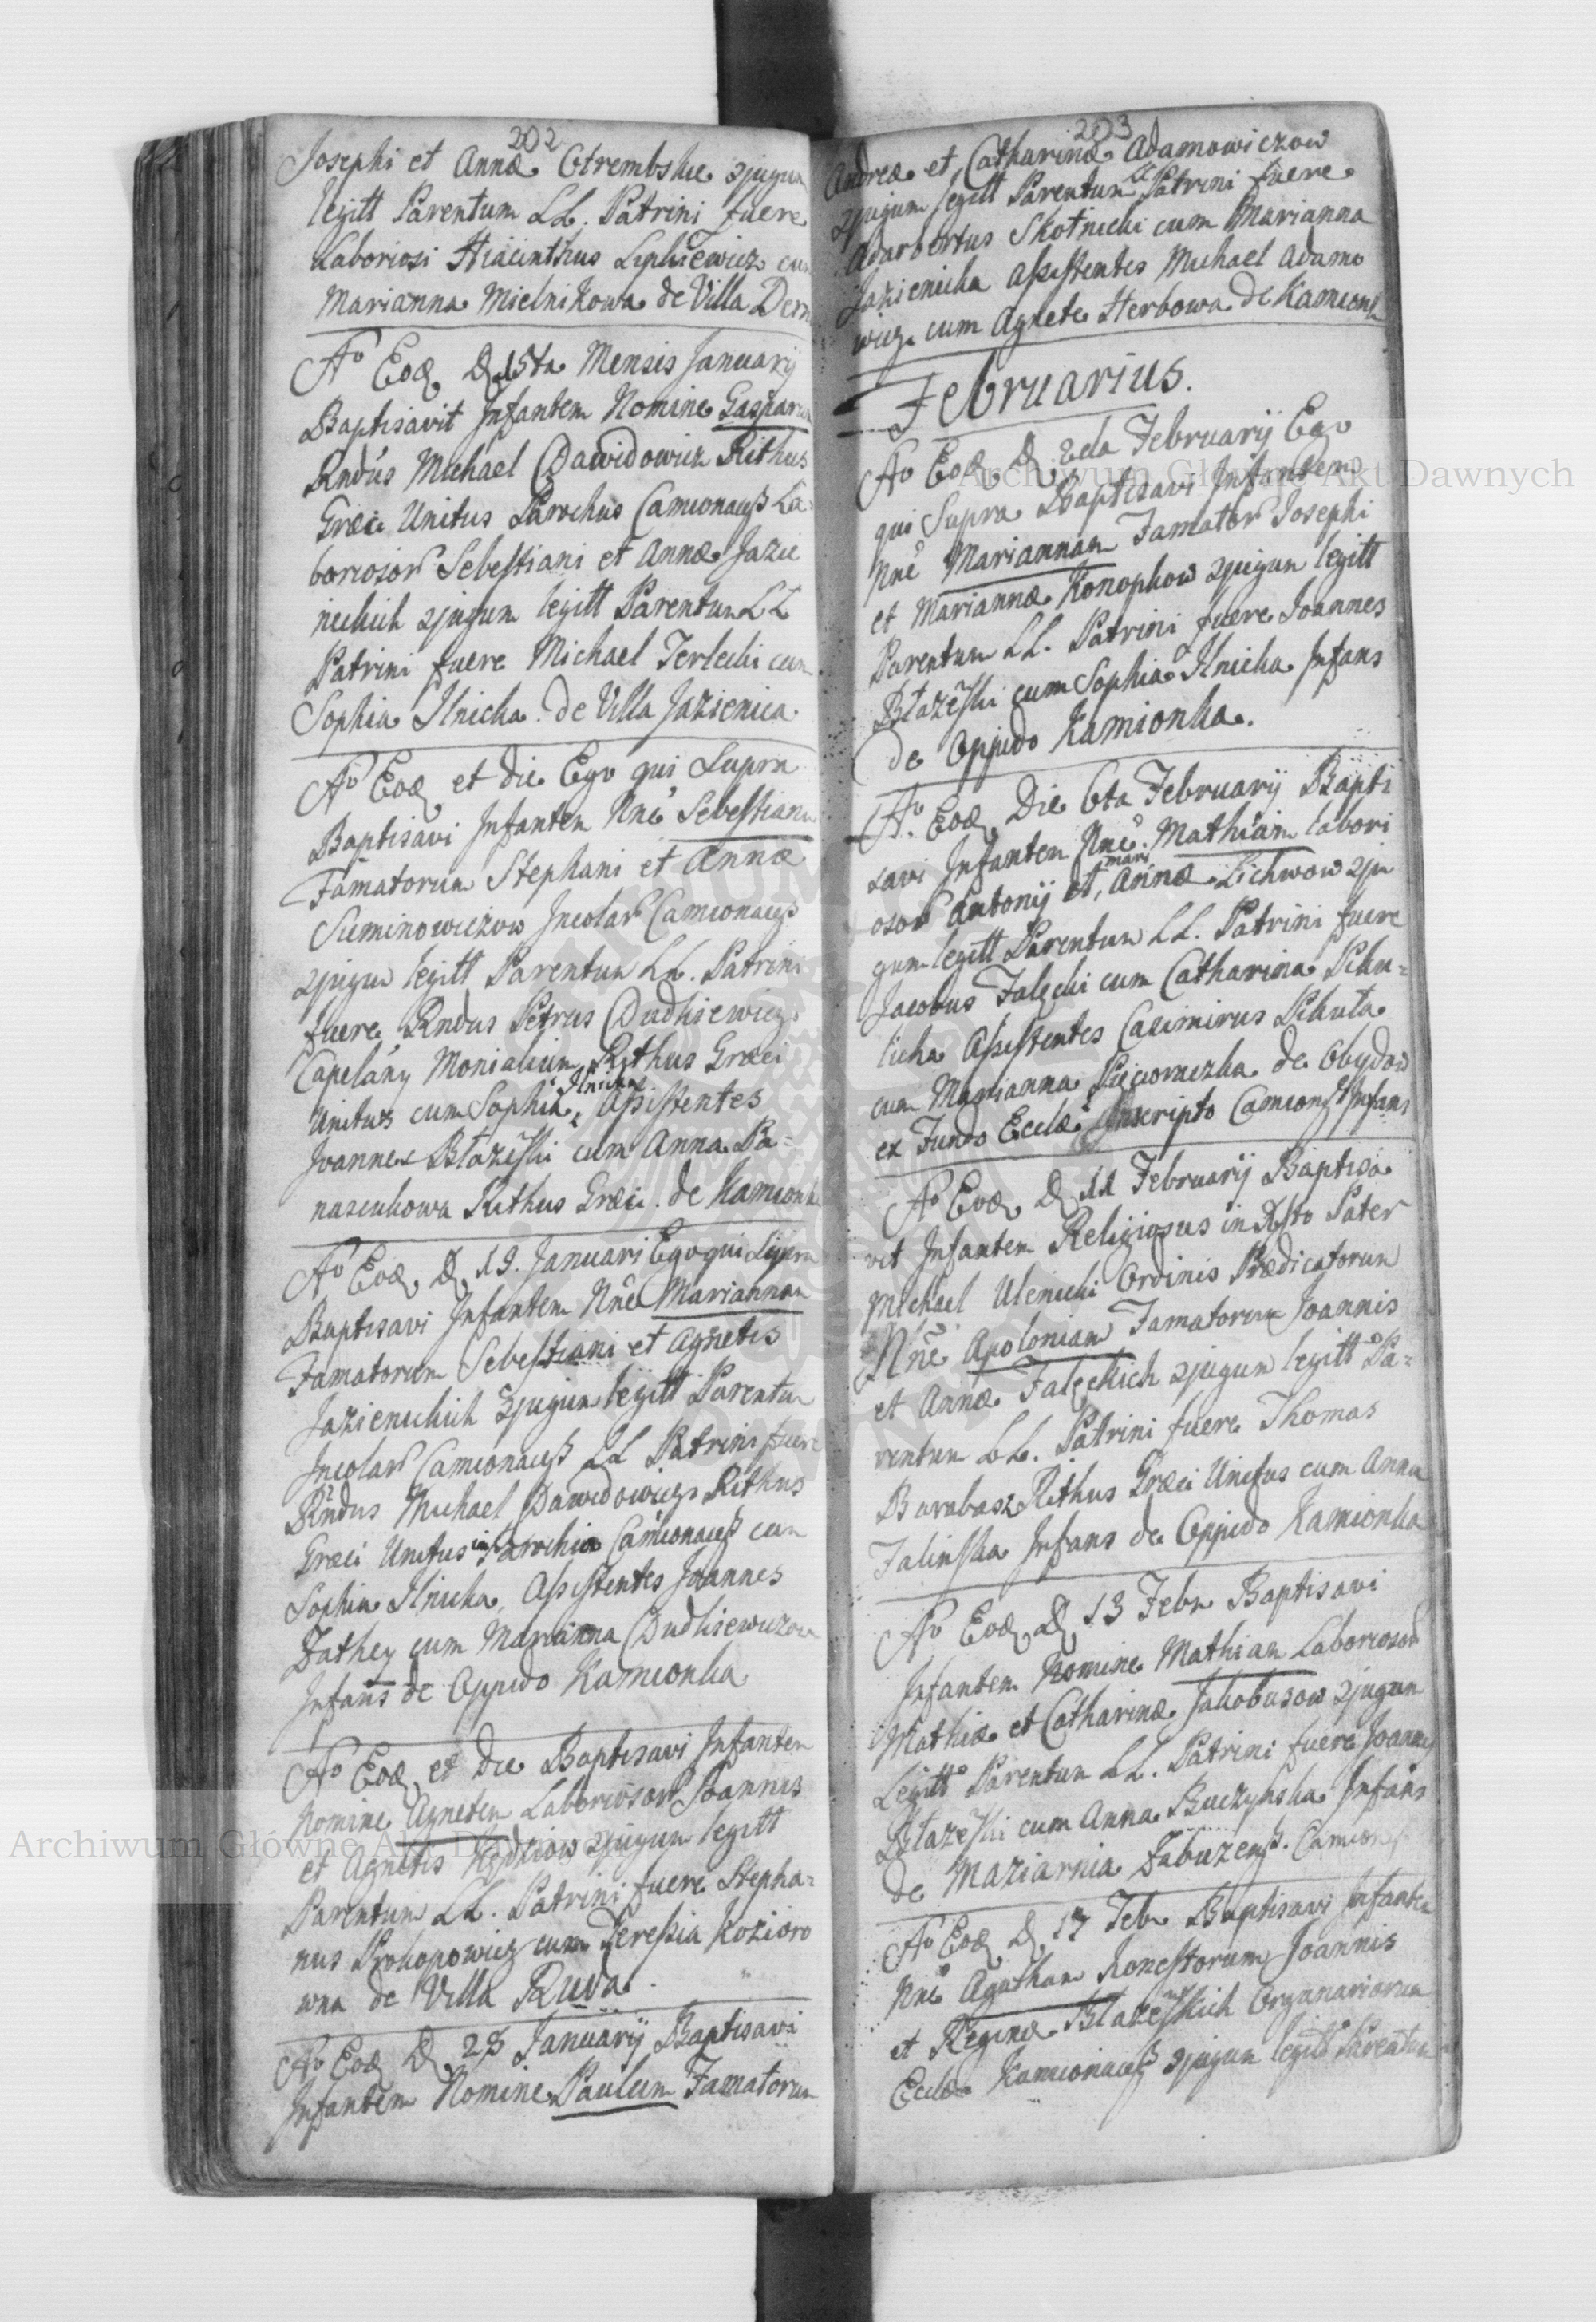 202
Josephi et Annæ Otrembskie
legitt Parentum LL. Patrini fuere
Laboriosi Hiacinthus
Marianna Mielnikowa de Villa Dern
Aº Eod D 15ta Mensis Januarij
Baptisavit Infantem Nomine Gasparum
Rndus Michael Dawidowicz Rithus
Græci Unitus Parochus Camionaceß La-
boriosor Sebestiani et Annæ Jazie
nickich legitt Parentum LL
Patrini fuere Michael Terlecki cum
Sophia Ilnicka de Villa Jazienica
Aº Eod et die Ego qui Supra
Baptisavi Infantem Nnê Sebestianum
Famatorum Stephani et Annæ
Incolar Camionaceß
legitt Parentum LL. Patrini
fuere Rndus Petrus Dudkiewicz
Capelany Monialium Rithus Græci
Unitus cum Sophia Ilnicka Aßistentes
Joannes Błazeski cum Anna Pa-
nasiukowa Rithus Græci de Kamionka
Aº Eod D 19. Januari Ego qui Supra
Baptisavi Infantem Nnê Mariannam
Famatorum Sebestiani et Agnetis
Jazienickich legitt Parentum
Incolar Camionaceß LL Patrini fuere
Rndus Michael Dawidowicz Rithus
Græci Unitus in Parochia Camionaceß cum
Sophia Ilnicka, Aßistentes Joannes
cum Marianna Dudkiewiczowa
Infans de Oppido Kamionka
Aº Eod et Die Baptisavi Infantem
Nomine Agneten Laboriosor Joannis
et Agnetis legitt
Parentum LL. Patrini fuere Stepha-
nus Prokopowicz cum Tereßia Kozioro
wna de Villa Ruda.
Aº Eod D 28 Januarij Baptisavi
Infantem Nomine Paulum Famatorum
203
Andreæ et Catharinæ Adamowiczow
legitt Parentum LL Patrini fuere
Adarbertus Skotnicki cum Marianna
Jazienicka Aßistentes Michael Adamo
wicz cum Agnete Herbowa de Kamionka
Februarius.
Aº Eod D 2da Februarij Ego
qui Supra Baptisavi Infantem
Nnê Mariannam Famator Josephi
et Mariannæ Konopkow legitt
Parentum LL. Patrini fuere Joannes
Błazeski cum Sophia Ilnicka Infans
de Oppido Kamionka.
Aº Eod Die 6ta Februarij Bapti
savi Infantem Nnê Mathiam labori
osor Antonij et mari Annæ Lichwow
gum legitt Parentum LL. Patrini fuere
Jacobus Falęcki cum Catharina Piku-
licka Aßistentes Casimirus Pikuta
cum Marianna de Obydow
ex Fundo Ecclæ Inscripto Camion Infans
Aº Eod D 11 Februarij Baptisa
vit Infantem Religiosus in Xsto Pater
Michael Ulenicki Ordinis Prædicatorum
Nnê Apoloniam Famatorum Joannis
et Annæ Falęckich legitt Pa-
rentum LL. Patrini fuere Thomas
Barabasz Rithus Græci Unitus cum Anna
Falinska Infans de Oppido Kamionka
Aº Eod D 13 Febr Baptisavi
Infantem Nomine Mathiam Laboriosor
Mathiæ et Catharinæ Jakobusow
Legitt Parentum LL. Patrini fuere Joannes
Błazeski cum Anna Buczynska Infans
de Maziarnia Camion
Aº Eod D 17 Feb Baptisavi Infantem
Nnê Agatham Honestorum Joannis
et Reginæ Błazeskich Organariorum
Ecclæ Kamionaceß legitt Parentum
Archiwum Główne Akt Dawnych
Archiwum Główne Akt Dawnych